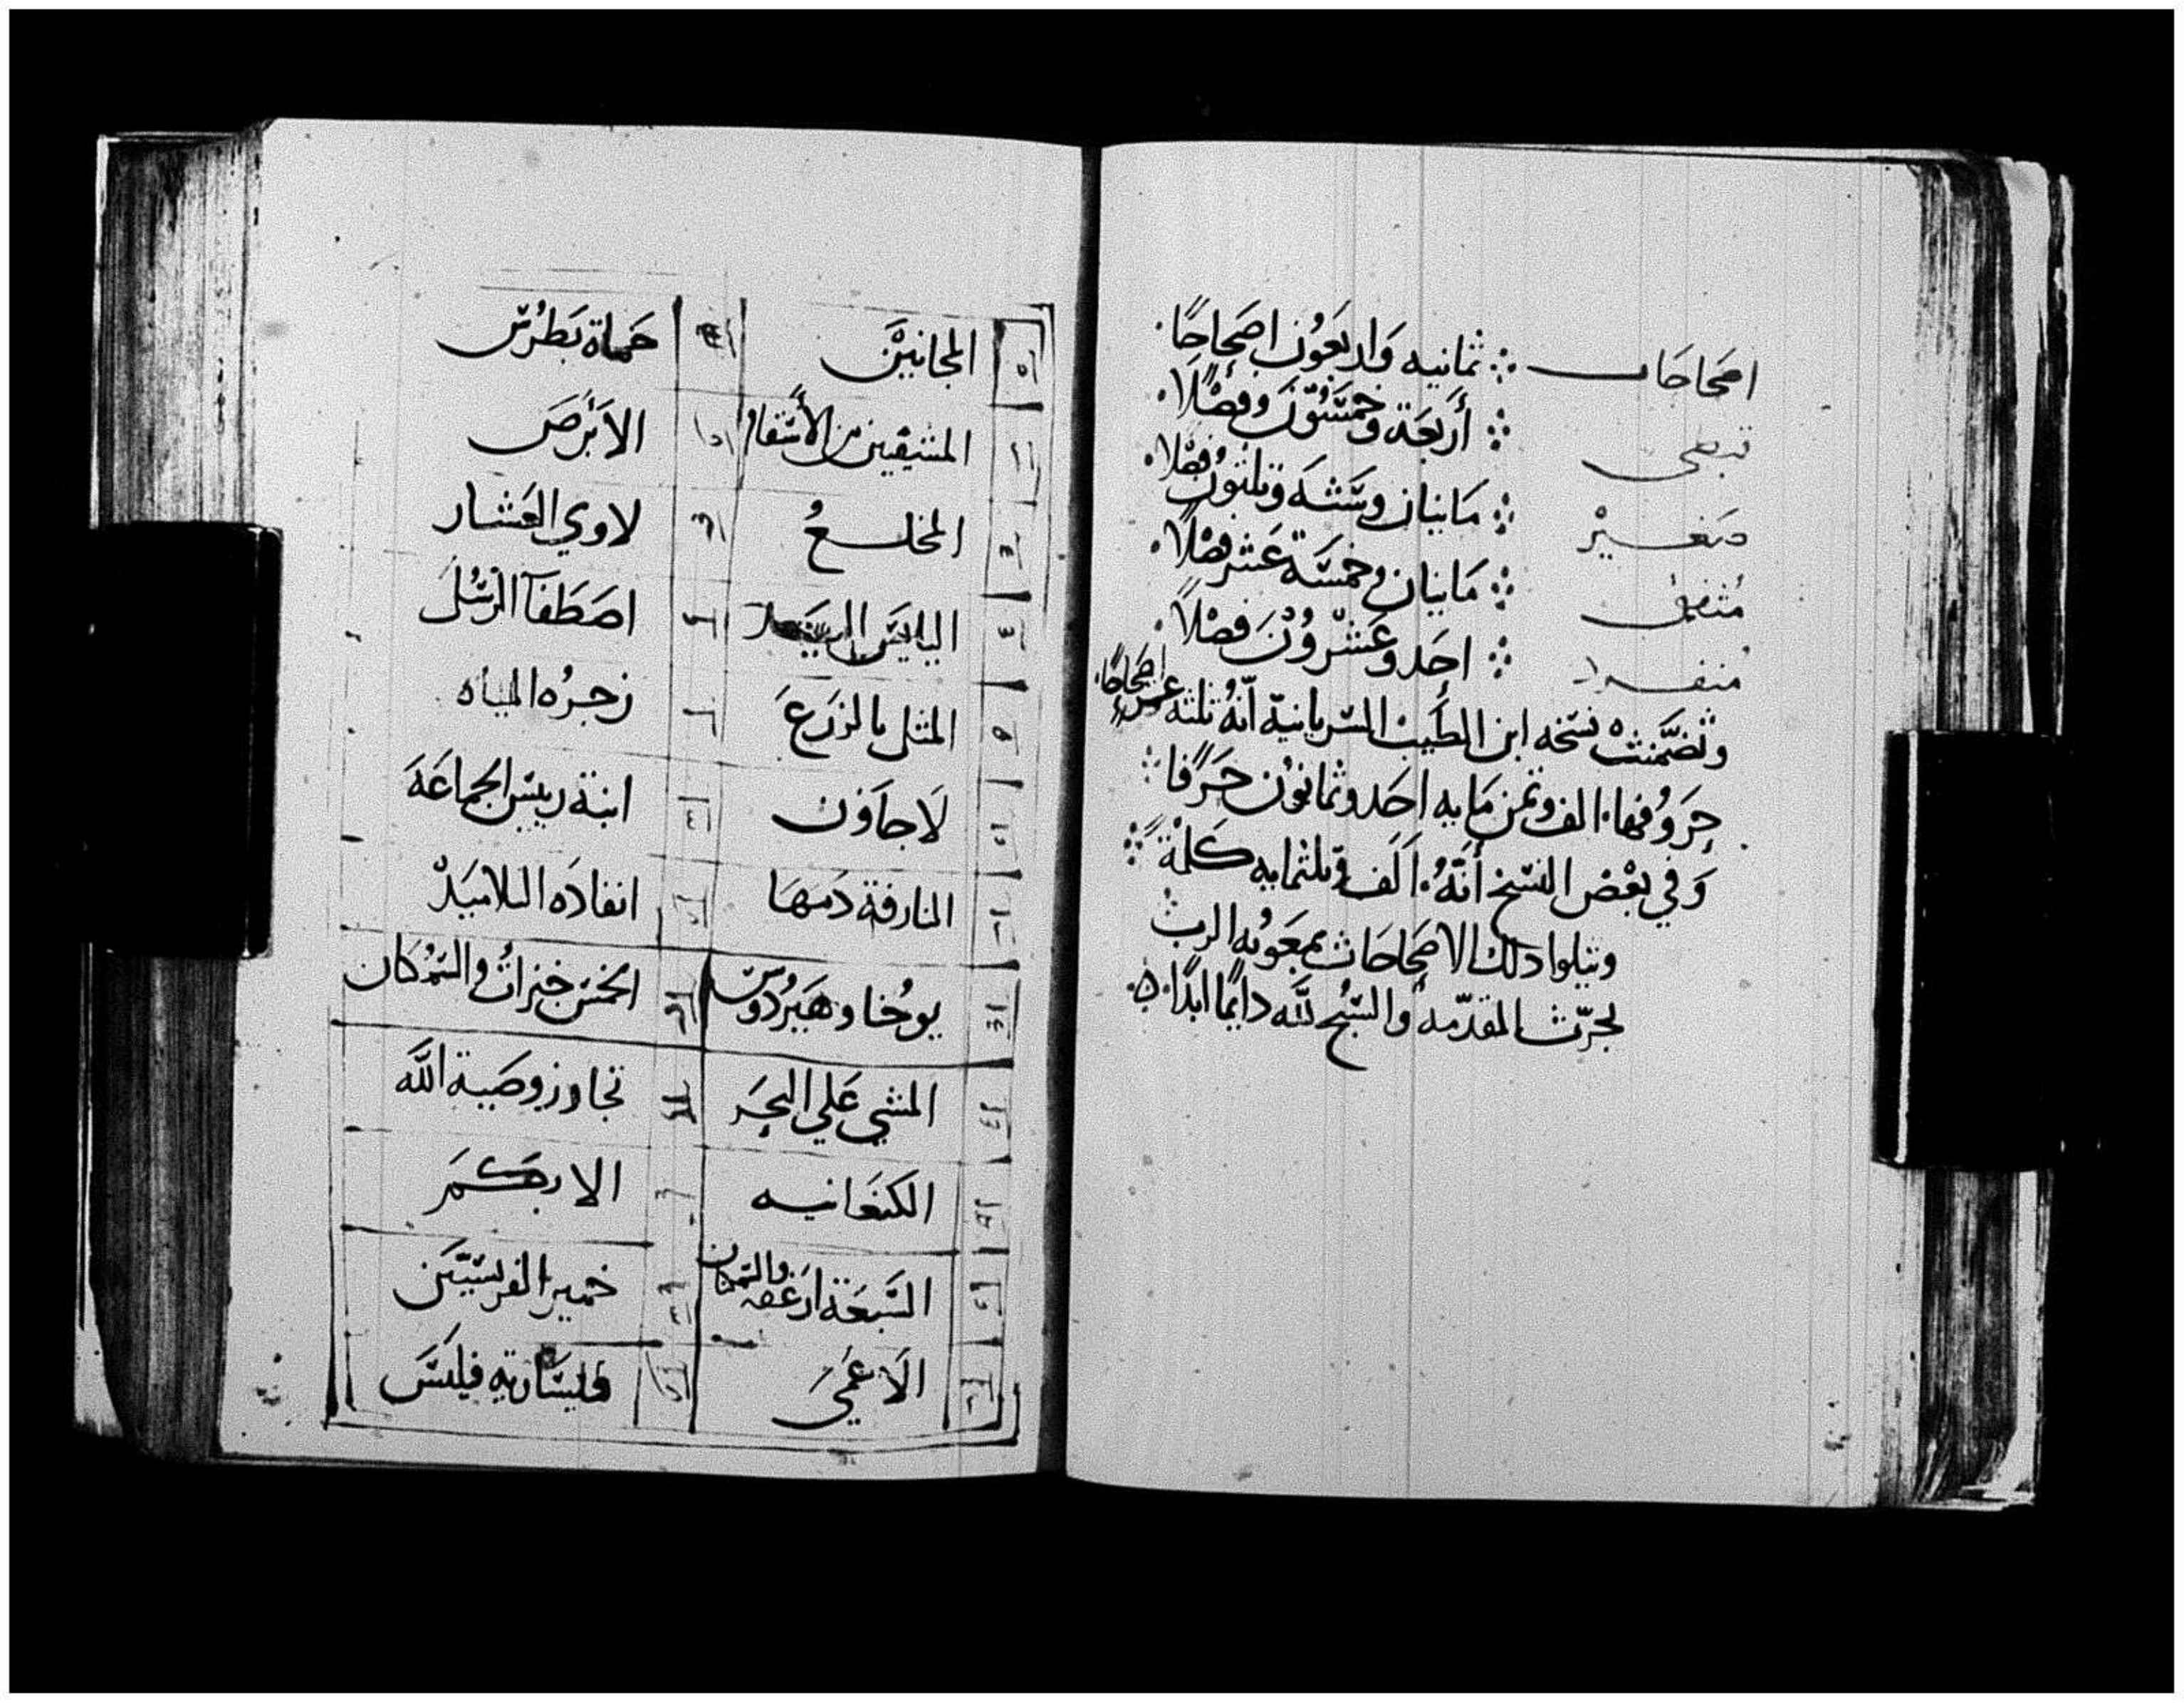 اصحاحات ∴ ثمانيه واربعون اصحاحًا.
قبطى ∴ أربعة وخمسُونَ فصْلًا.
صَغيرْ ∴ مَايتان وستَه وثلثون فصْلا.
متفق ∴ مَايتان وخمسَة عَشر فصْلًا.
منفرد ∴ احَد وعَشْرُوْنَ فصْلًا.
وتضمَّنت نسَخه ابن الطيب السريانية انَّهُ ثلثه عشر اصحَاحًا.
حِرَوُفها. الف وثمن مَايه احَد وثمانوُن حَرَفًا ∴
وَفي بعْض النسَخ أنَهُ. اَلَف وثلثمايه كَلمْة ∴
ويتلوا دلك الاصحَاحَات بمعَونه الربْ
لمجرّت المقدّمه والسُبْح للَّه دايمًا ابدًا.
المجانيْن حَماة بَطرُس
المستيقين من الأسَقام الاَبَرَصَ
المخلــعُ لاوي العَشار
اليابس اليَد اصَطفَآ الرسُل
المثل بالزرَع زجرُه المياه
لاَجاوَن ابنة رييس الجماعَة
النازفة دَمهَا انفادَه التلاميَدْ
يوحُنا وهَيرُدوس الخمسَ خبزاتُ والسَمُكتان
المشي عَلي البحِرَ تجاوز وصَية اللَّه
الكنعَانيه الابكمَ
السَبعَة ارغفه والسمكتان خمير الفريسَيَن
الاَعمَىَ قيسَارية فيلبسَ